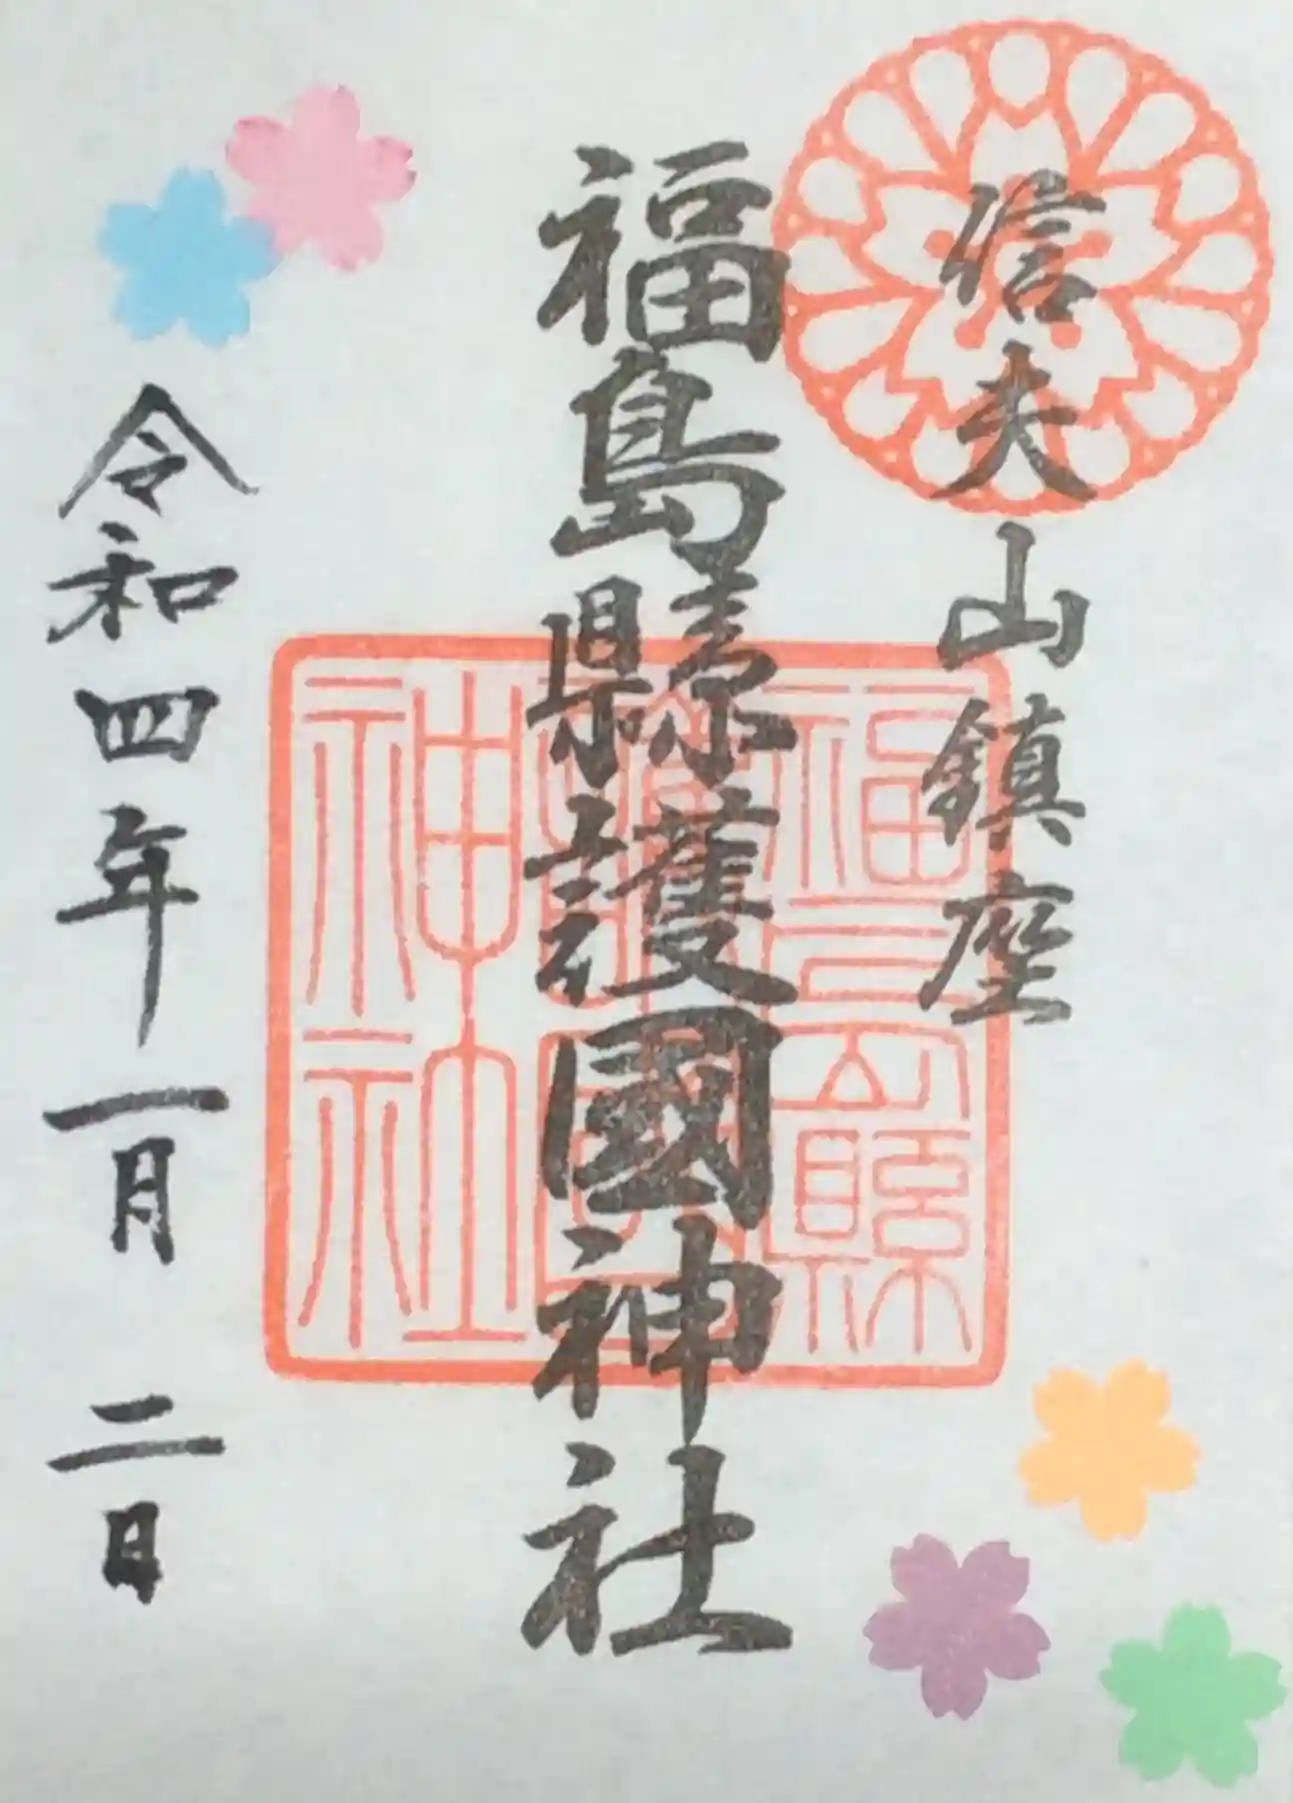 信夫山鎮座
福島縣護國神社
福島縣護國神社
令和四年一月二日